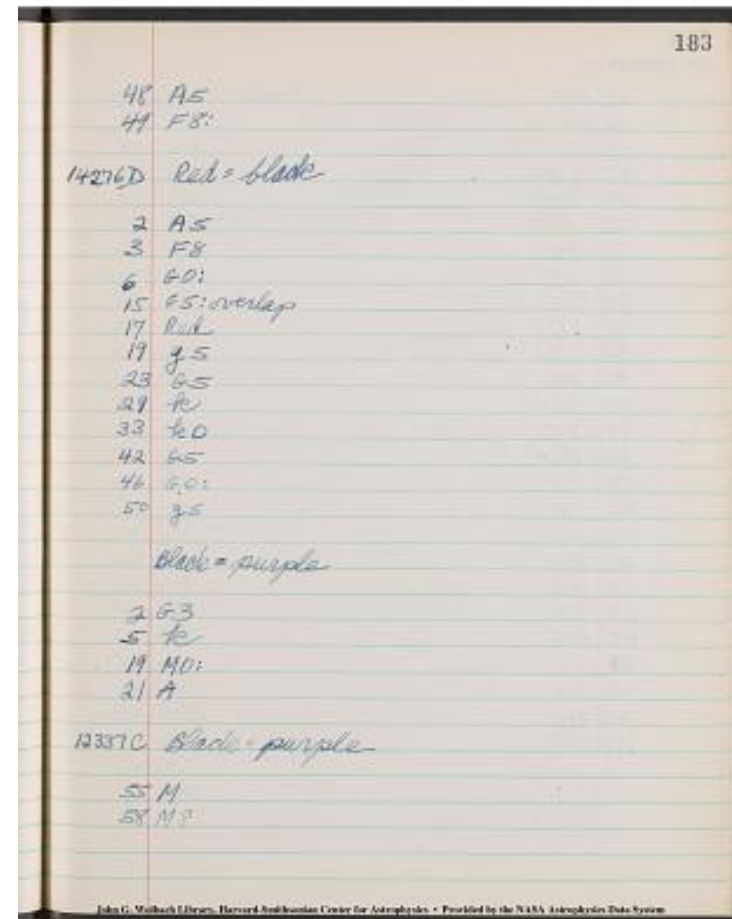 183
48 A5
49 F8:
14276D Red = black
2 A5
3 F8
6 G0:
15 G5: overlap
17 Red
19 g5
23 G5
29 k
33 k0
42 G5
46 G0:
50 g5
Black = purple
2 G3
5 k
19 M0:
21 A
12337C Black = purple
55 M
58 M?
John G. Wolbach Library, Harvard-Smithsonian Center for Astrophysics • Provided by the NASA Astrophysics Data System